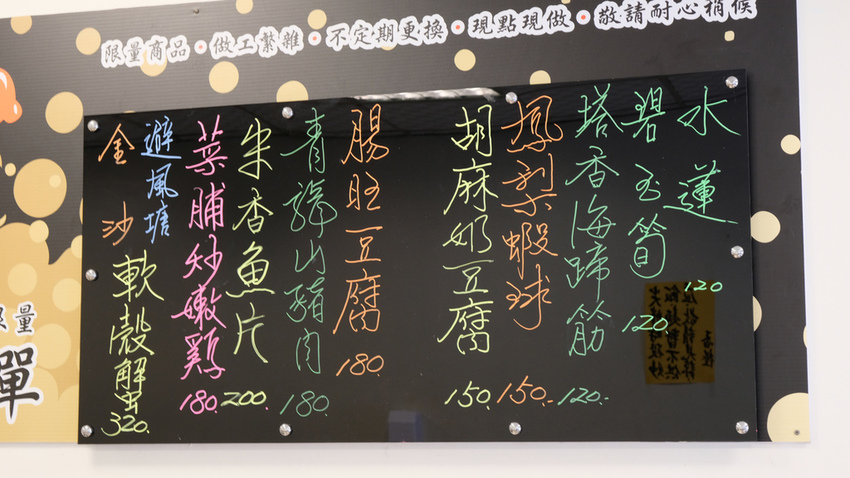 限量商品•做工繁雜•不定期更換•現點現做•敬請耐心稍候
水蓮 120
碧玉筍 120
塔香海蹄筋 120.-
鳳梨蝦球 150.-
胡麻奶豆腐 150.
腸旺豆腐 180.
青龍山豬肉 180.
朱香魚片 200.
菜脯炒嫩雞 180.
避風塘
金沙
軟殼蟹 320.
限量
彈